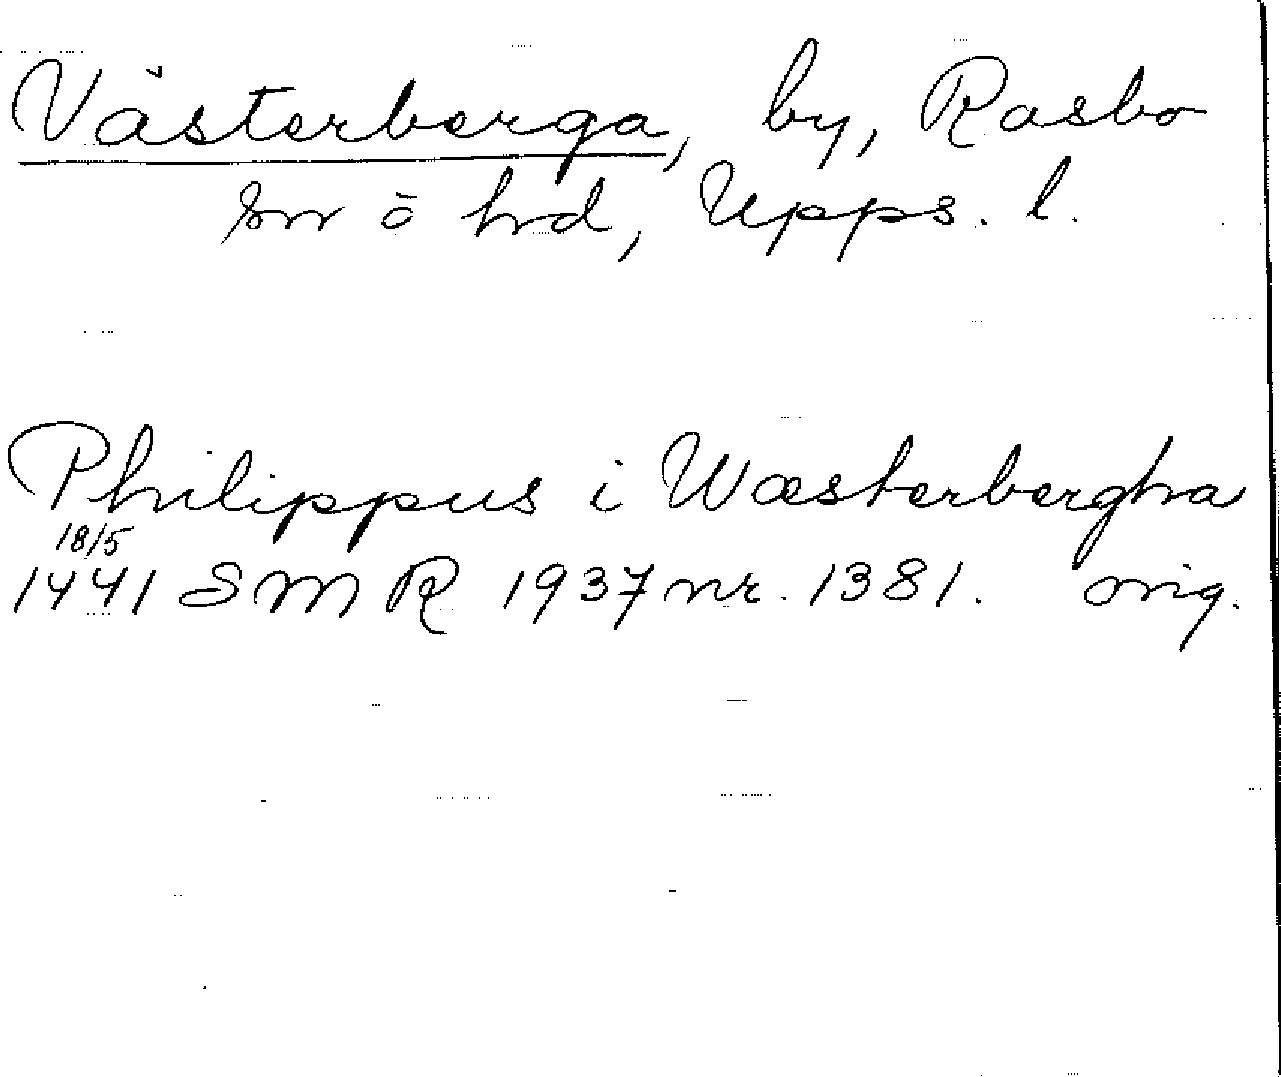 Västerberga, by, Rasbo
sn o hd, Upps. l.
Philippus i Wæsterbergha
18/5
1441 SMR 1937 nr. 1381. orig.